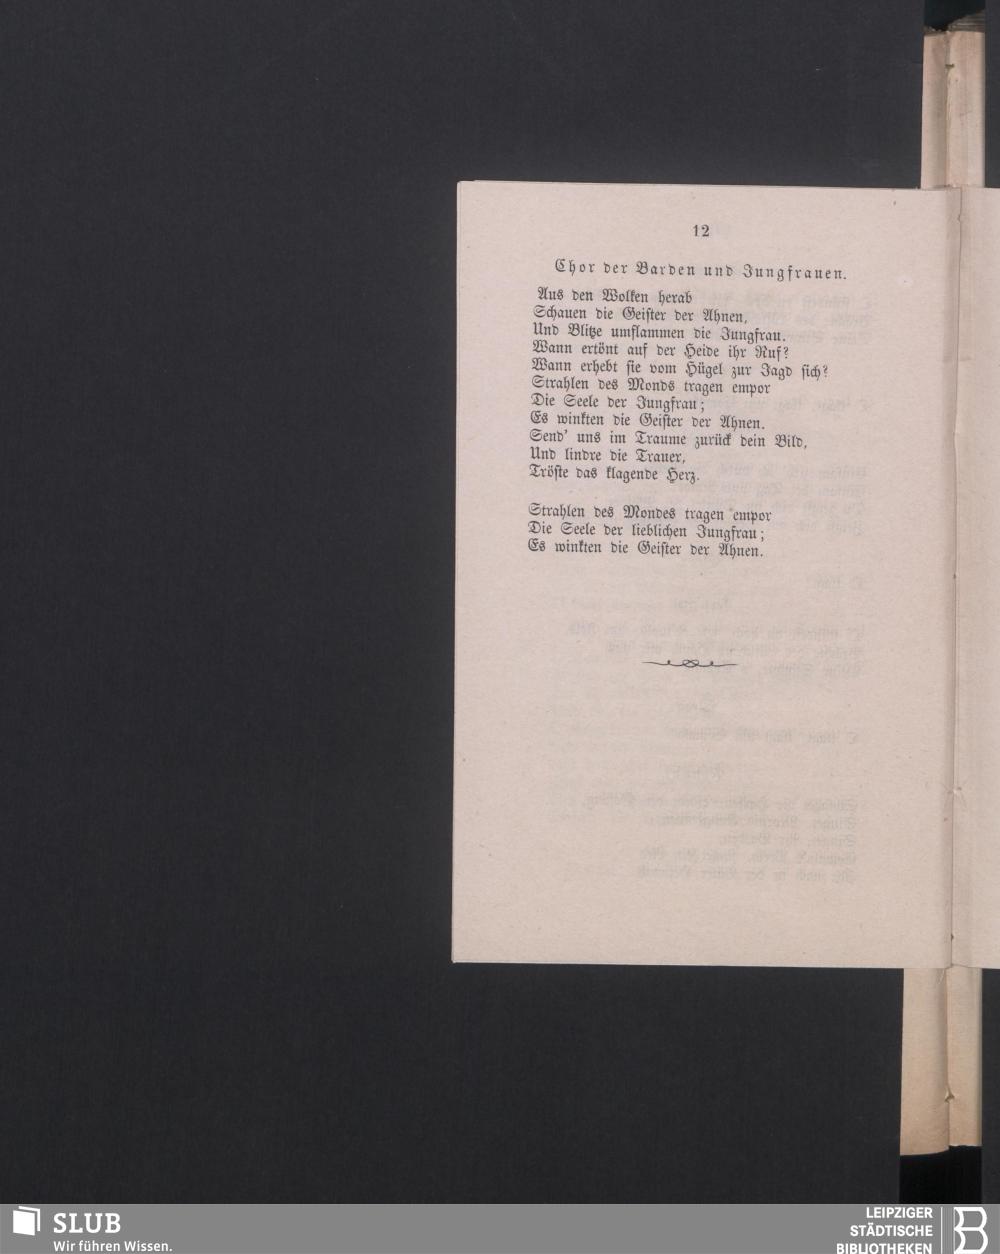 12
Chor der Barden und Jungfrauen.
Aus den Wolken herab
Schauen die Geister der Ahnen,
Und Blitze umflammen die Jungfrau.
Wann ertönt auf der Heide ihr Ruf?
Wann erhebt sie vom Hügel zur Jagd sich?
Strahlen des Monds tragen empor
Die Seele der Jungfrau;
Es winkten die Geister der Ahnen.
Send' uns im Traume zurück dein Bild,
Und lindre die Trauer,
Tröste das klagende Herz.
Strahlen des Mondes tragen empor
Die Seele der lieblichen Jungfrau;
Es winkten die Geister der Ahnen.
SLUB
Wir führen Wissen.
LEIPZIGER
STÄDTISCHE
BIBLIOTHEKEN